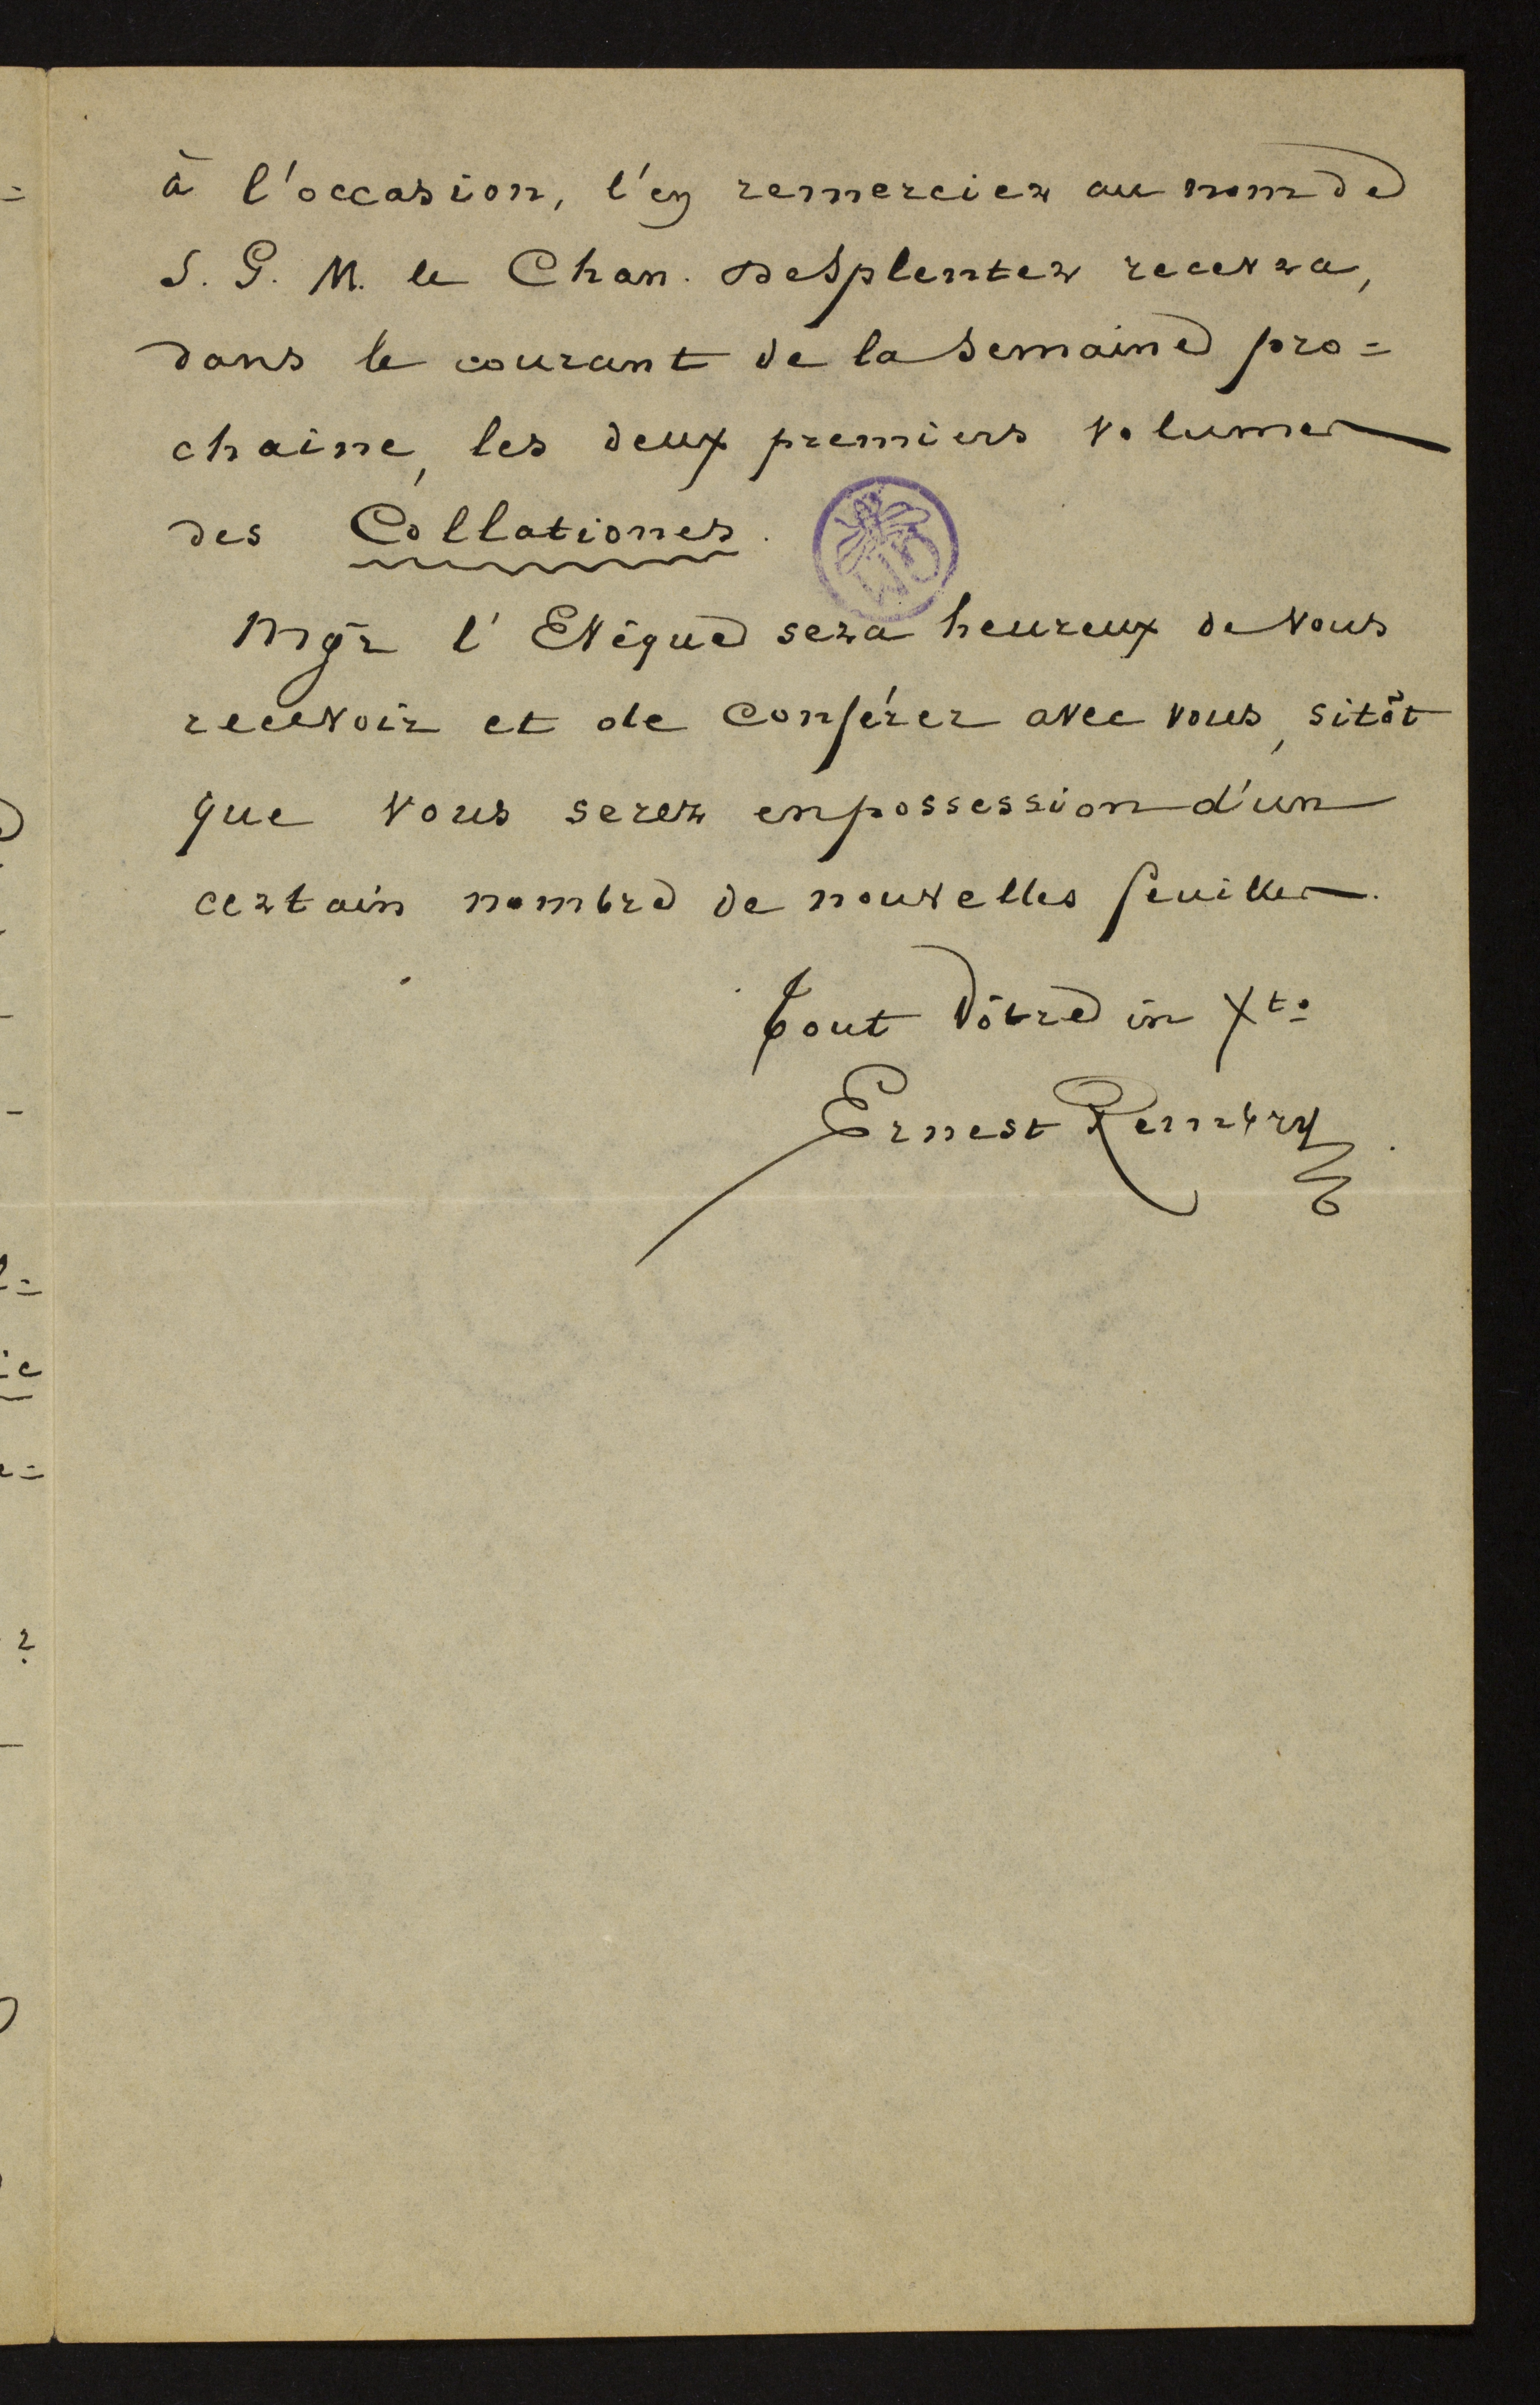 à l'occasion, l'en remercier au nom de
S. G. M. le Chan. DeSplenter recevra,
dans le courant de la semaine pro=
chaine, les deux premiers volumes
des Collationes.
Mgr l'Evêque sera heureux de vous
recevoir et de conférer avec vous, sitôt
que vous serez en possession d'un
certain nombre de nouvelles feuilles.
Tout vôtre in Xto
Ernest Rembry